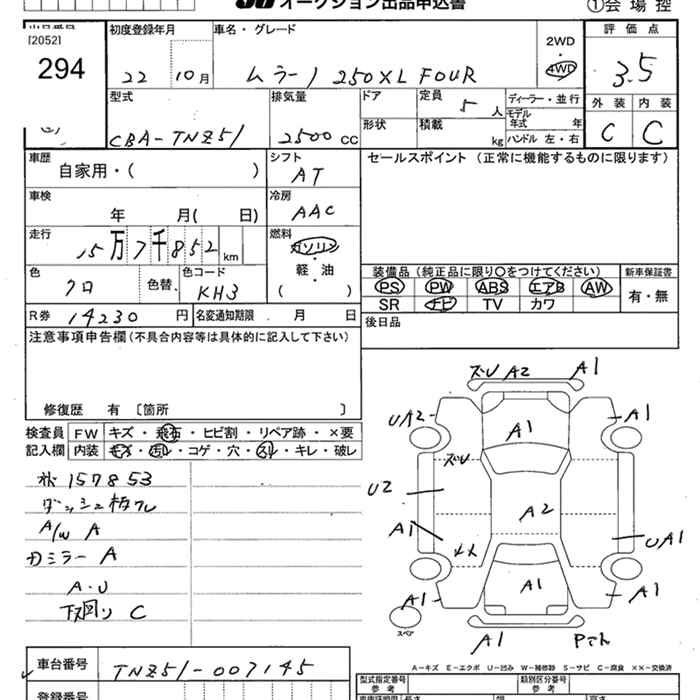 オークション出品申込書
①会場控
出品番号
[2052]
294
初度登録年月
22 10月
車名・グレード
ムラーノ 250XL FOUR
2WD
・
4WD
評価点
3.5
外装 内装
C C
型式
CBA-TNZ51
排気量
2500 CC
ドア
形状
定員 5 人
積載 kg
ディーラー・並行
モデル年式 年
ハンドル 左・右
車歴
自家用・( )
シフト
AT
セールスポイント (正常に機能するものに限ります)
車検
年 月( 日)
冷房
AAC
走行
15万7千852km
燃料
ガソリン
・
軽油
・
( )
色
クロ
色替
色コード
KH3
装備品 (純正品に限り○をつけてください)
新車保証書
PS PW ABS エアB AW
SR ナビ TV カワ
有・無
R券 14230 円
名変通知期限 月 日
後日品
注意事項申告欄(不具合内容等は具体的に記入して下さい)
修復歴 有 〔箇所 〕
検査員記入欄
FW キズ・飛石・ヒビ割・リペア跡・×要
内装 キズ・汚レ・コゲ・穴・スレ・キレ・破レ
157853
A/W A
カミラー A
A・U
下廻り C
ズU A2 A1
UA2 A1 A1
ズU
U2 A2
A1 UA1
A1 A1 A1
スペア
A1
A-キズ E-エクボ U-凹み W-補修跡 S-サビ C-腐食 ××-交換済
車台番号
TNZ51-007145
型式指定番号
参考
類別区分番号
参考
登録番号